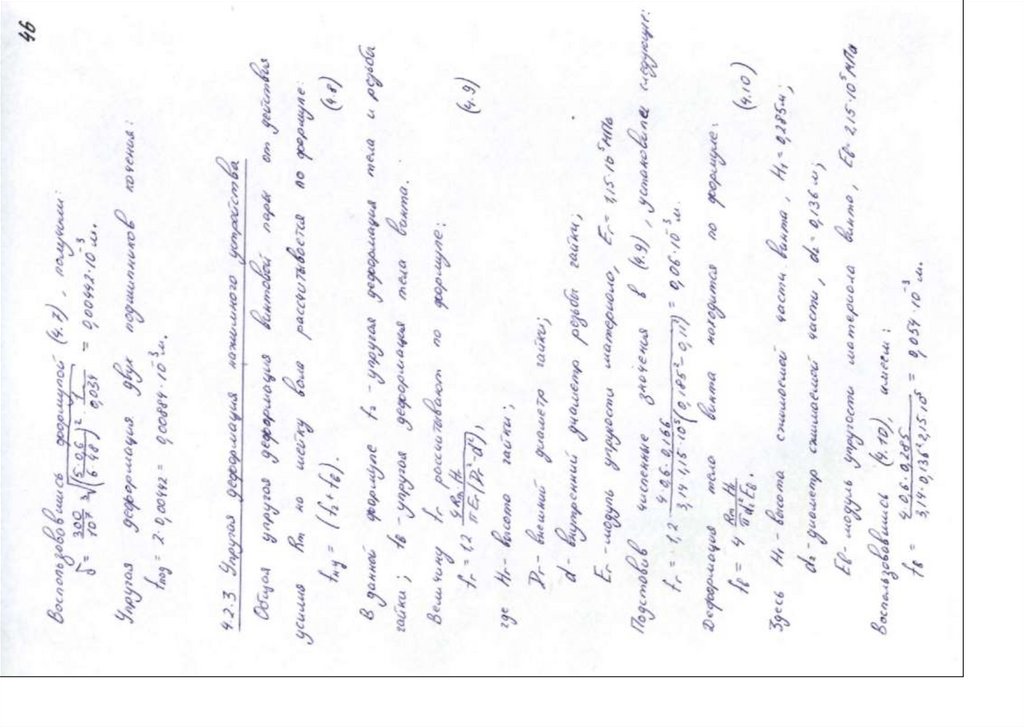 46
Воспользовавшись формулой (4.7), получим:
δ = 300/10⁷ ³√((5·0,6/6·48)² · 1/0,034) = 0,00442·10⁻³ м.
Упругая деформация двух подшипников качения:
fпод = 2·0,00442 = 0,00884·10⁻³ м.
4.2.3 Упругая деформация нажимного устройства
Общая упругая деформация винтовой пары от действия
усилия Rm на шейку вала рассчитывается по формуле:
fну = (fг + fв). (4.8)
В данной формуле fг - упругая деформация тела и резьбы
гайки; fв - упругая деформация тела винта.
Величину fг рассчитывают по формуле:
fг = 1,2 4RmHг/πEг(Dг²-d²), (4.9)
где Hг - высота гайки;
Dг - внешний диаметр гайки;
d - внутренний диаметр резьбы гайки;
Eг - модуль упругости материала, Eг = 1,15·10⁵ МПа
Подставив численные значения в (4.9), установлен следующие:
fг = 1,2 4·0,6·0,166/3,14·1,15·10⁵(0,185²-0,11²) = 0,06·10⁻³ м.
Деформация тела винта находится по формуле:
fв = 4 RmH1/πd2²Eв (4.10)
Здесь H1 - высота сжимаемой части винта, H1 = 0,285 м;
d2 - диаметр сжимаемой части, d2 = 0,136 м;
Eв - модуль упругости материала винта, Eв = 2,15·10⁵ МПа
Воспользовавшись (4.10), имеем:
fв = 4·0,6·0,285/3,14·0,136²·2,15·10⁵ = 0,054·10⁻³ м.